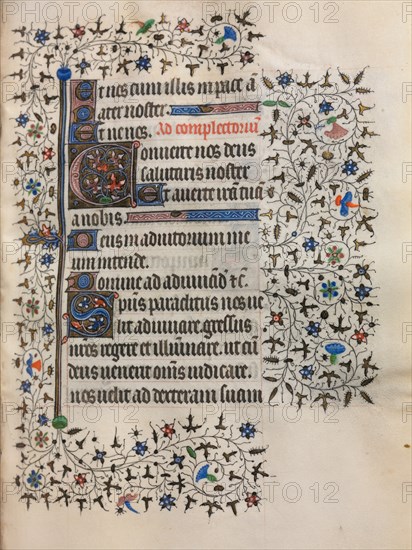 Et nos cum illis in pace a
ater noster.
Et ne nos. Ad complectoriū
Converte nos deus
salutaris noster
Et averte irā tuā
a nobis.
Deus in adiutorium me
um intende.
Domine ad adiuvād̄ &c.
Spūs paraclitus nos ve
lit adiuvare. gressus
nr̄os regere et illūinare. ut cū
deus venerit om̄s iudicare.
nos velit ad dexteram suam
PHOTO12